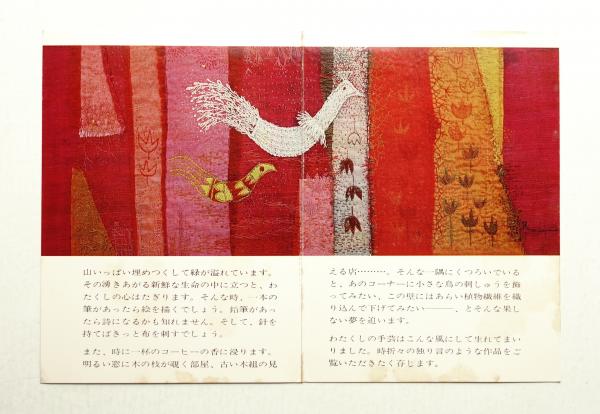 山いっぱい埋めつくして緑が溢れています。
その湧きあがる新鮮な生命の中に立つと、わ
たくしの心はたぎります。そんな時、一本の
筆があったら絵を描くでしょう。鉛筆があっ
たら詩になるかも知れません。そして、針を
持てばきっと布を刺すでしょう。
また、時に一杯のコーヒーの香に浸ります。
明るい窓に木の枝が覗く部屋、古い木組の見
える店………。そんな一隅にくつろいでいる
と、あのコーナーに小さな鳥の刺しゅうを飾っ
てみたい、この壁にはあらい植物繊維を織
り込んで下げてみたい———、とそんな果し
ない夢を追います。
わたくしの手芸はこんな風にして生れてまい
りました。時折々の独り言のような作品をご
覧いただきたく存じます。